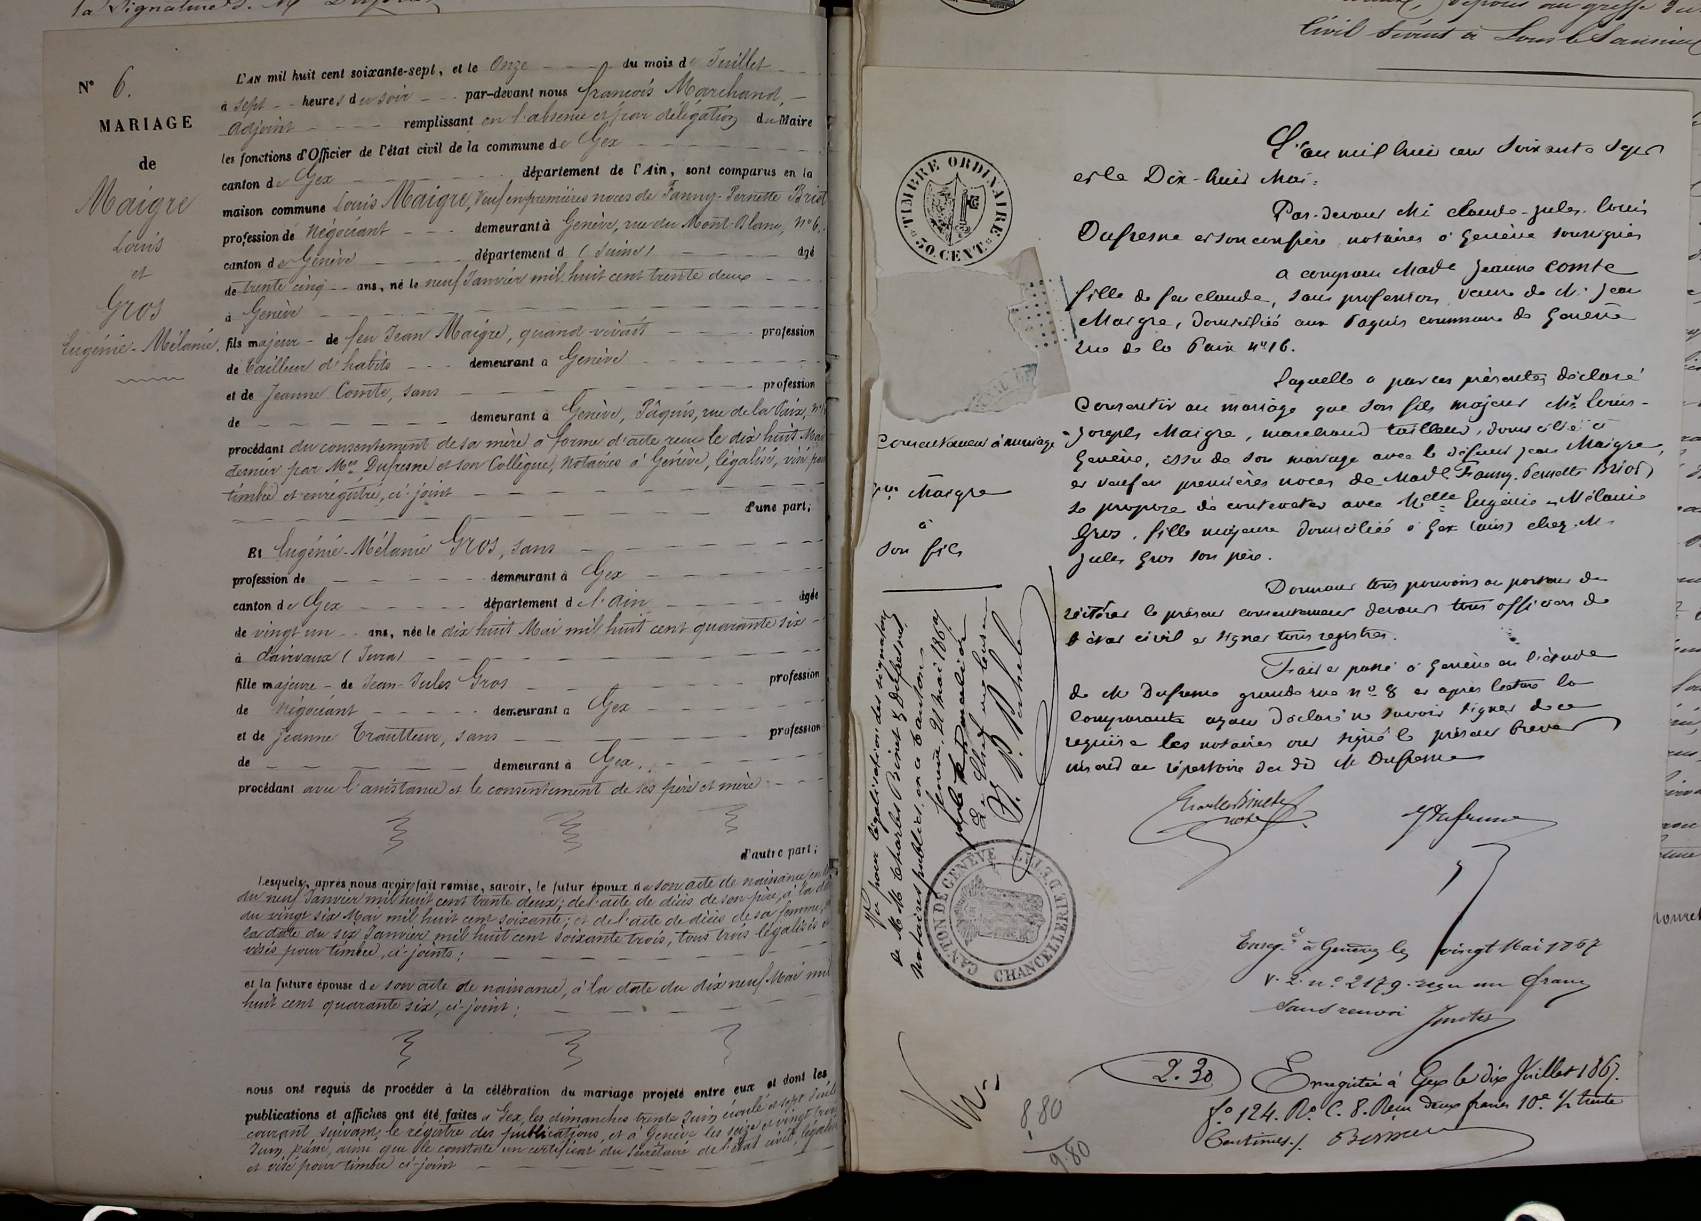 la Signature d. M Dufour
N° 6.
MARIAGE
de
Maigre
Louis
et
Gros
Eugénie-Mélanie.
L'AN mil huit cent soixante-sept, et le Onze du mois de Juillet
à sept heures du soir par-devant nous François Marchand,
adjoint remplissant en l'absence et par délégation du Maire
les fonctions d'Officier de l'état civil de la commune de Gex
canton de Gex département de l'Ain, sont comparus en la
maison commune Louis Maigre, Veuf en premières noces de Fanny-Pernette Briot
profession de Négociant demeurant à Genève, rue du Mont-Blanc, n° 6,
canton de Genève département d (Suisse) âgé
de trente cinq ans, né le neuf Janvier mil huit cent trente deux
à Genève
fils majeur de feu Jean Maigre, quand vivait profession
de tailleur d'habits demeurant à Genève
et de Jeanne Comte, sans profession
de demeurant à Genève, Pâquis, rue de la Paix, n°
procédant du consentement de sa mère à forme d'acte reçu le dix huit Mai
dernier par Mes Dufresne et son Collègue, Notaires à Genève, légalisé, visé pour
timbre et enregistré, ci-joint
d'une part;
Et Eugénie-Mélanie Gros, sans
profession de demeurant à Gex
canton de Gex département de l'Ain âgée
de vingt un ans, née le dix huit Mai mil huit cent quarante six
à (Jura)
fille majeure de Jean-Jules Gros profession
de Négociant demeurant à Gex
et de Jeanne Trautteur, sans profession
de demeurant à Gex,
procédant avec l'assistance et le consentement de ses père et mère
d'autre part;
Lesquels, après nous avoir fait remise, savoir, le futur époux de son acte de naissance, en date
du neuf Janvier mil huit cent trente deux; de l'acte de décès de son père, à la date
du vingt six Mai mil huit cent soixante; et de l'acte de décès de sa femme, à
la date du six Janvier mil huit cent soixante trois, tous trois légalisés et
visés pour timbre, ci-joints;
et la future épouse de son acte de naissance, à la date du dix neuf Mai mil
huit cent quarante six, ci-joint;
nous ont requis de procéder à la célébration du mariage projeté entre eux et dont les
publications et affiches ont été faites à Gex, les dimanches trente Juin écoulé et sept Juillet
courant suivant le registre des publications, et à Genève les seize et vingt trois
Juin passé, ainsi que le constate un certificat du Secrétaire de l'état civil, légalisé
et visé pour timbre ci-joint
Civil Séant à Lons le Saunier
TIMBRE ORDINAIRE
50. CENT.
L'an mil huit cent soixante sept
et le Dix-huit Mai.
Par-devant Me Claude-Jules-Louis
Dufresne et son confrère, notaires à Genève soussignés
a comparu Made Jeanne Comte
fille de feu Claude, sans profession, veuve de Mr Jean
Maigre, domiciliée aux Paquis commune de Genève
rue de la Paix n° 16.
Laquelle a par ces présentes déclaré
Consentir au mariage que son fils majeur Mr Louis-
Joseph Maigre, marchand tailleur, domicilié à
Genève, issu de son mariage avec le défunt Jean Maigre,
et veuf en premières noces de Made Fanny-Pernette Briot
se propose de contracter avec Melle Eugénie-Mélanie
Gros, fille majeure domiciliée à Gex (Ain) chez M.
Jules Gros son père.
Donnant tous pouvoirs au porteur de
réitérer le présent consentement devant tous officiers de
l'état civil et signer tous registres.
Fait et passé à Genève en l'étude
de Me Dufresne grande rue n° 8 et après lecture la
comparante ayant déclaré ne savoir signer de ce
requise les notaires ont signé le présent brevet
inscrit au répertoire du dit Me Dufresne
Consentement à mariage
Maigre
à
son fils
Vu pour légalisation des signatures
de M M Charles Binet & Dufresne,
notaires publics en ce Canton.
Genève, 21 mai 1867
Charles Binet
not
Dufresne
CANTON DE GENÈVE
CHANCELLERIE D'ETAT
Enreg.é à Genève le vingt Mai 1867
V. 2. n° 2179. reçu un franc
sans renvoi
2.30
Enregistré à Gex le dix Juillet 1867.
f° 124. R° C. 8. Reçu deux francs 10e 1/2 trente
Centimes
8.80
9.80